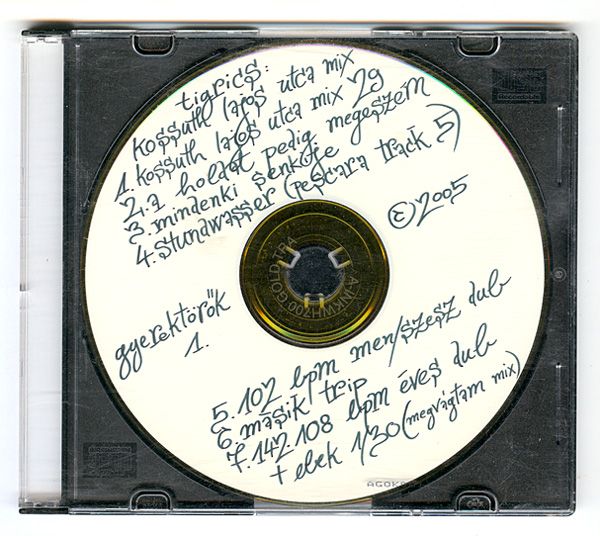 tigrics:
kossuth lajos utca mix
1. kossuth lajos utca mix 29
2. a holdat pedig megeszem
3. mindenki senkije
4. stunawasser (pescara track 5)
© 2005
gyerektörők
1.
5. 102 bpm men/szesz dub
6. másik trip
7. 142 108 bpm éves dub
+ elek 1/30 (megvágtam mix)
Recordable